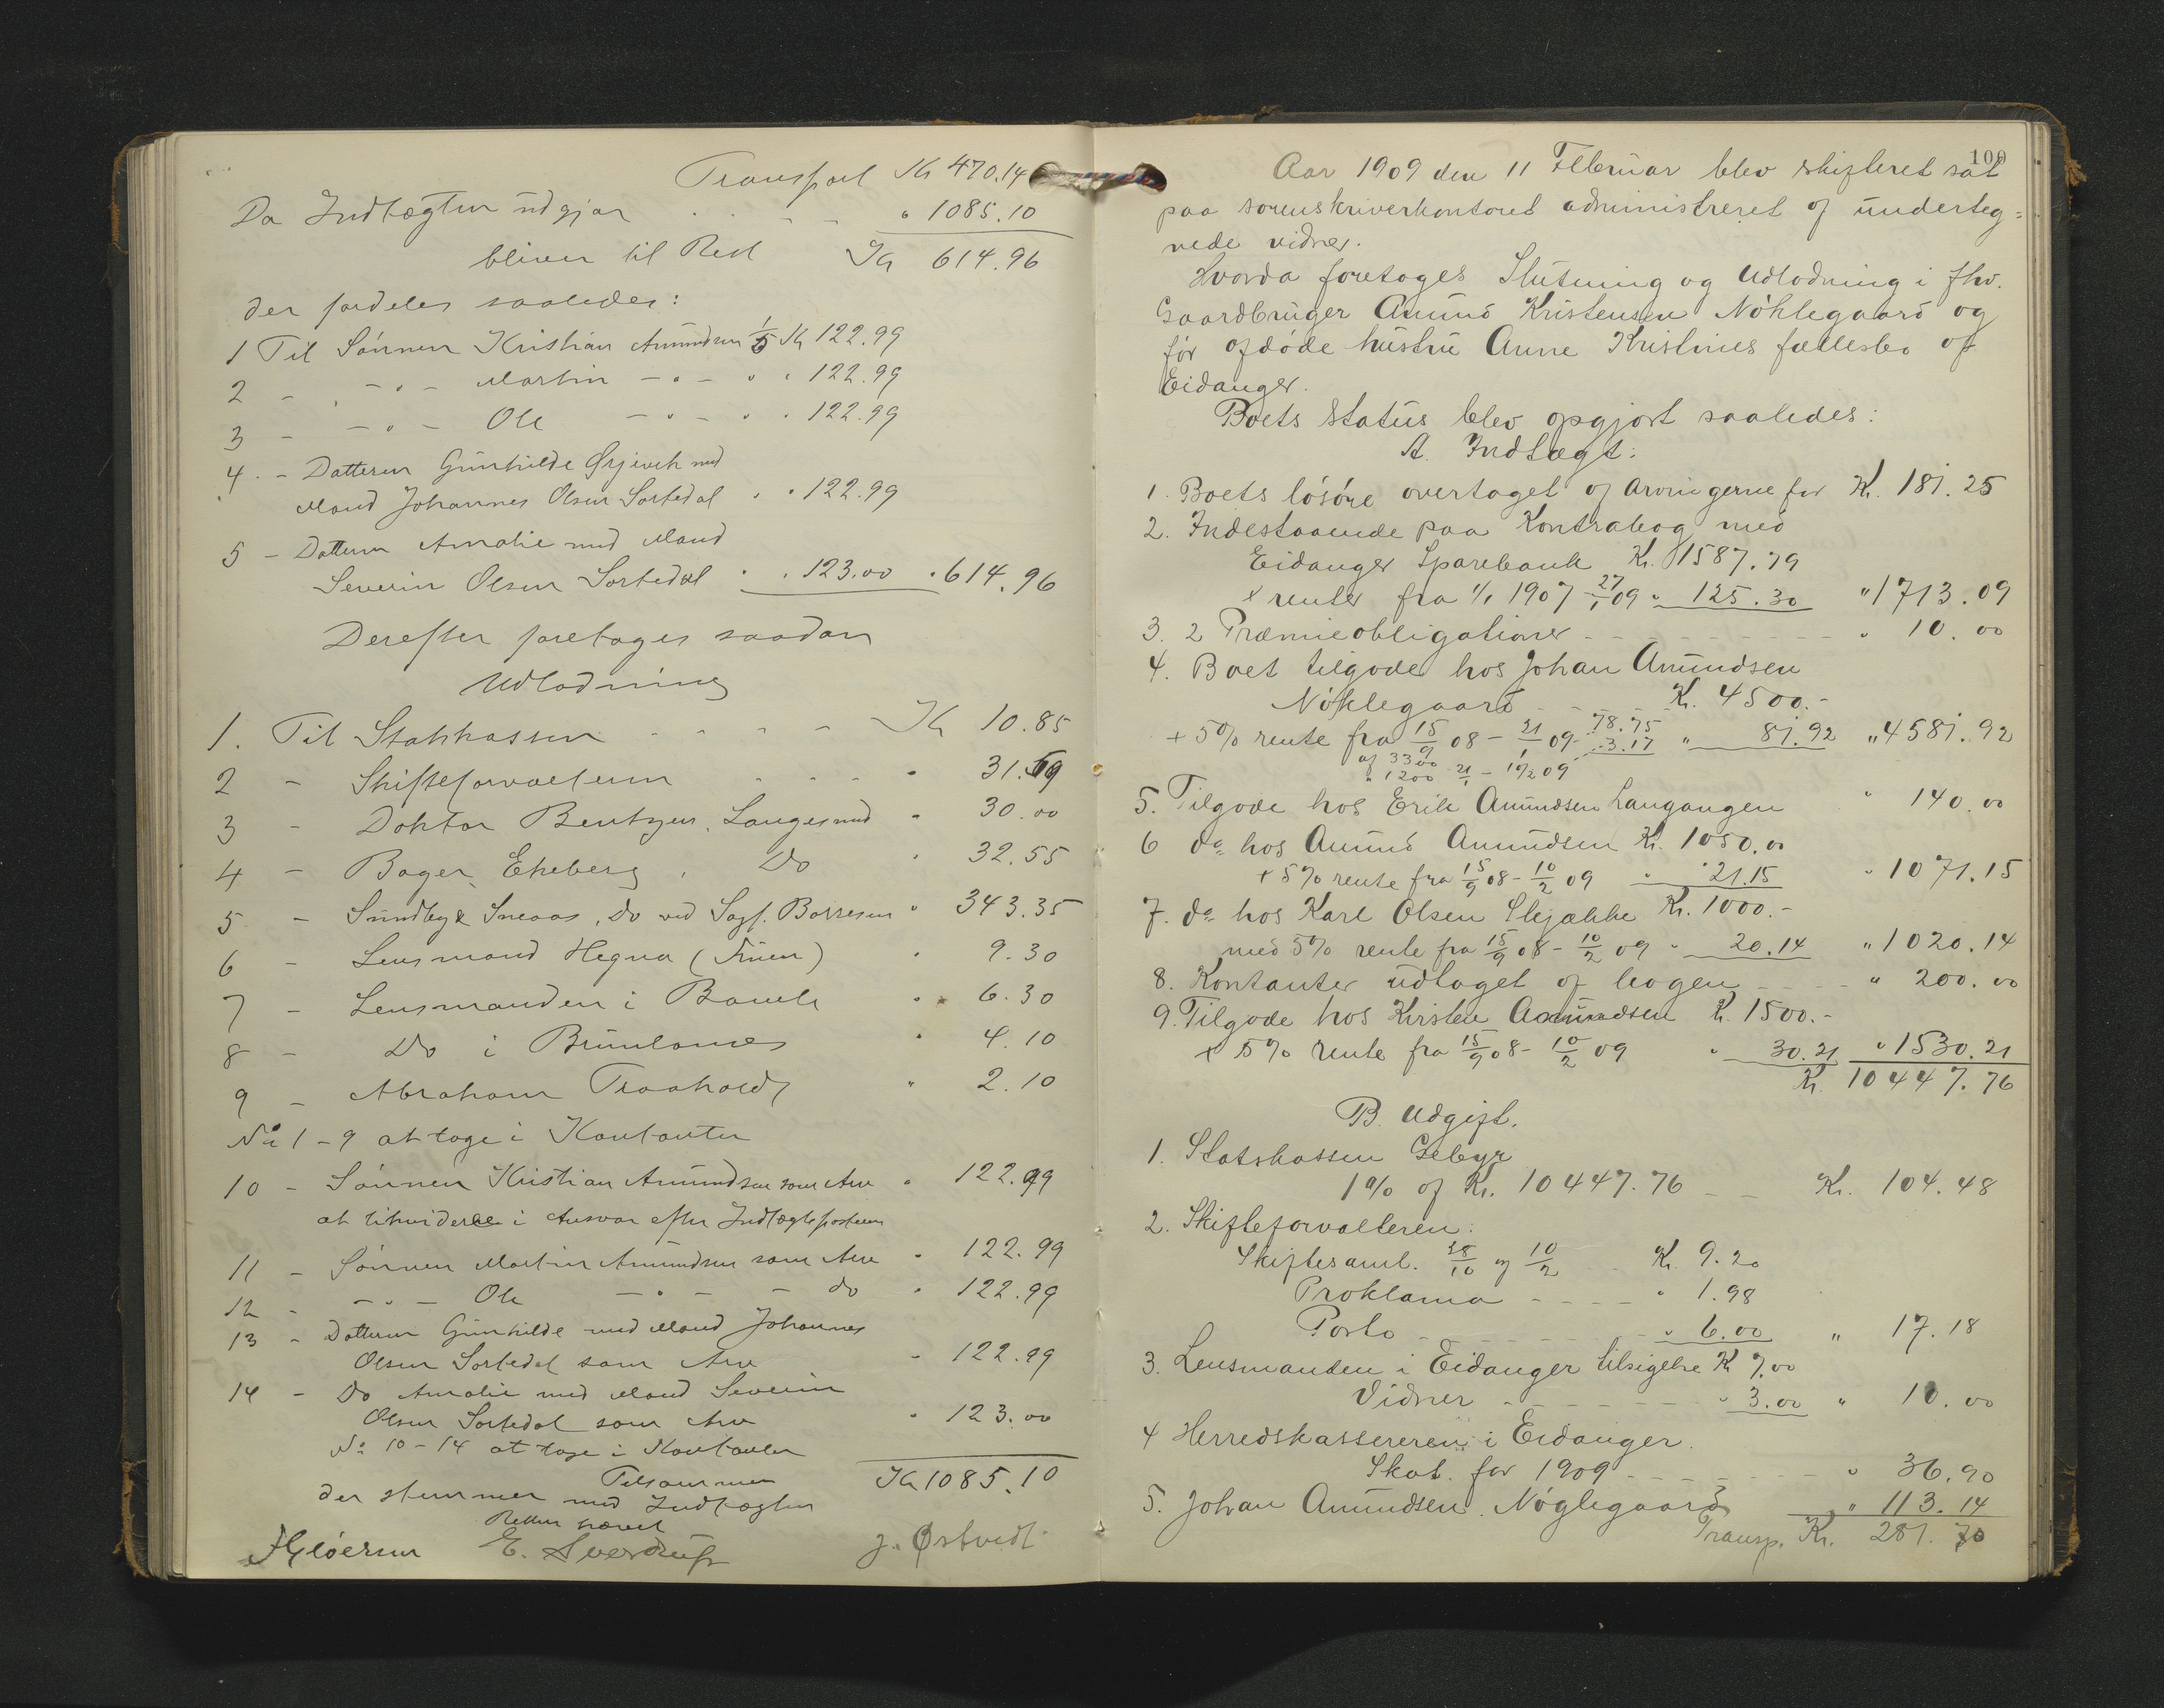 Transport Kr 470.14
Da Indtægten udgjør " 1085.10
bliver til Rest Kr 614.96
der fordeles saaledes:
1 Til Sønnen Kristian Amundsen 1/5 Kr 122.99
2 - - " - Martin - " - " " 122.99
3 - - " - Ole - " - " " 122.99
4. - Datteren Gunhilde med
Mand Johannes Olsen Sortedal " " 122.99
5 - Datteren Amalie med Mand
Severin Olsen Sortedal " " 123.00 " 614.96
Derefter foretages saadan
Udlodning
1. Til Statskassen - - - - Kr 10.85
2 - Skifteforvalteren - - - " 31.59
3 - Doktor Bentzen, Langesund " 30.00
4 - Bager Ekeberg, Do " 32.55
5 - Sundbye Sneaas, Do ved Sagf. Borresen " 343.35
6 - Lensmand Hegna (Fruen) " 9.30
7 - Lensmanden i Bamle " 6.30
8 - Do i Brunlanes " 4.10
9 - Abraham Traaholdt " 2.10
No 1-9 at tage i Kontanter
10 - Sønnen Kristian Amundsen som Arv " 122.99
at likvidere i Ansvar efter Indtægtsposten
11 - Sønnen Martin Amundsen som Arv " 122.99
12 - - " - Ole - " - - do " 122.99
13 - Datteren Gunhilde med Mand Johannes
Olsen Sortedal som Arv " 122.99
14 - Do Amalie med Mand Severin
Olsen Sortedal som Arv " 123.00
No 10-14 at tage i Kontanter
Tilsammen Kr 1085.10
der stemmer med Indtægten
Retten hævet
E. Sverdrup J. Østvedt
100
Aar 1909 den 11 Februar blev skifteret sat
paa sorenskriverkontoret administreret af underteg=
nede vidner.
Hvorda foretoges Slutning og Udlodning i fhv.
Gaardbruger Amund Kristensen Nøklegaard og
før afdøde hustru Anne Kristines fællesbo af
Eidanger.
Boets Status blev opgjort saaledes:
A. Indtægt:
1. Boets løsøre overtaget af Arvingerne for Kr. 181.25
2. Indestaaende paa Kontrabog med
Eidanger Sparebank Kr. 1587.79
+ renter fra 1/1 1907 - 27/1 09 " 125.30 " 1713.09
3. 2 Præmieobligationer - - - - - - " 10.00
4. Boet tilgode hos Johan Amundsen
Nøklegaard - - - Kr. 4500.-
+ 5% rente fra 15/9 08 - 21/1 09 - 78.75 3.17 " 81.92 " 4581.92
af 3300
" 1200 21/1 - 10/2 09
5. Tilgode hos Erik Amundsen Langangen " 140.00
6 do hos Amund Amundsen Kr. 1050.00
+ 5% rente fra 15/9 08 - 10/2 09 " 21.15 " 1071.15
7. do hos Karl Olsen Skjække Kr. 1000.-
med 5% rente fra 15/9 08 - 10/2 09 " 20.14 " 1020.14
8. Kontanter udtaget af bogen - - - - " 200.00
9. Tilgode hos Kirsten Amundsen Kr. 1500.-
+ 5% rente fra 15/9 08 - 10/2 09 " 30.21 " 1530.21
Kr. 10447.76
B. Udgift.
1. Statskassen Gebyr
1% af Kr. 10447.76 - - Kr. 104.48
2. Skifteforvalteren:
Skiftesaml. 28/10 og 10/2 - - Kr. 9.20
Proklama - - - - " 1.98
Porto - - - - - - " 6.00 " 17.18
3. Lensmanden i Eidanger tilsigelse Kr 7.00
Vidner - - - - - - " 3.00 " 10.00
4 Herredskassereren i Eidanger.
Skat for 1909 - - - - - - " 36.90
5. Johan Amundsen Nøglegaard " 113.14
Transp. Kr. 281.70